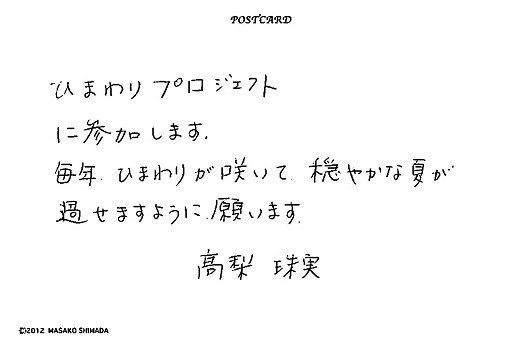 POSTCARD
ひまわりプロジェクト
に参加します.
毎年.ひまわりが咲いて.穏やかな夏が
過せますように.願います.
高梨 珠実
©2012 MASAKO SHIMADA